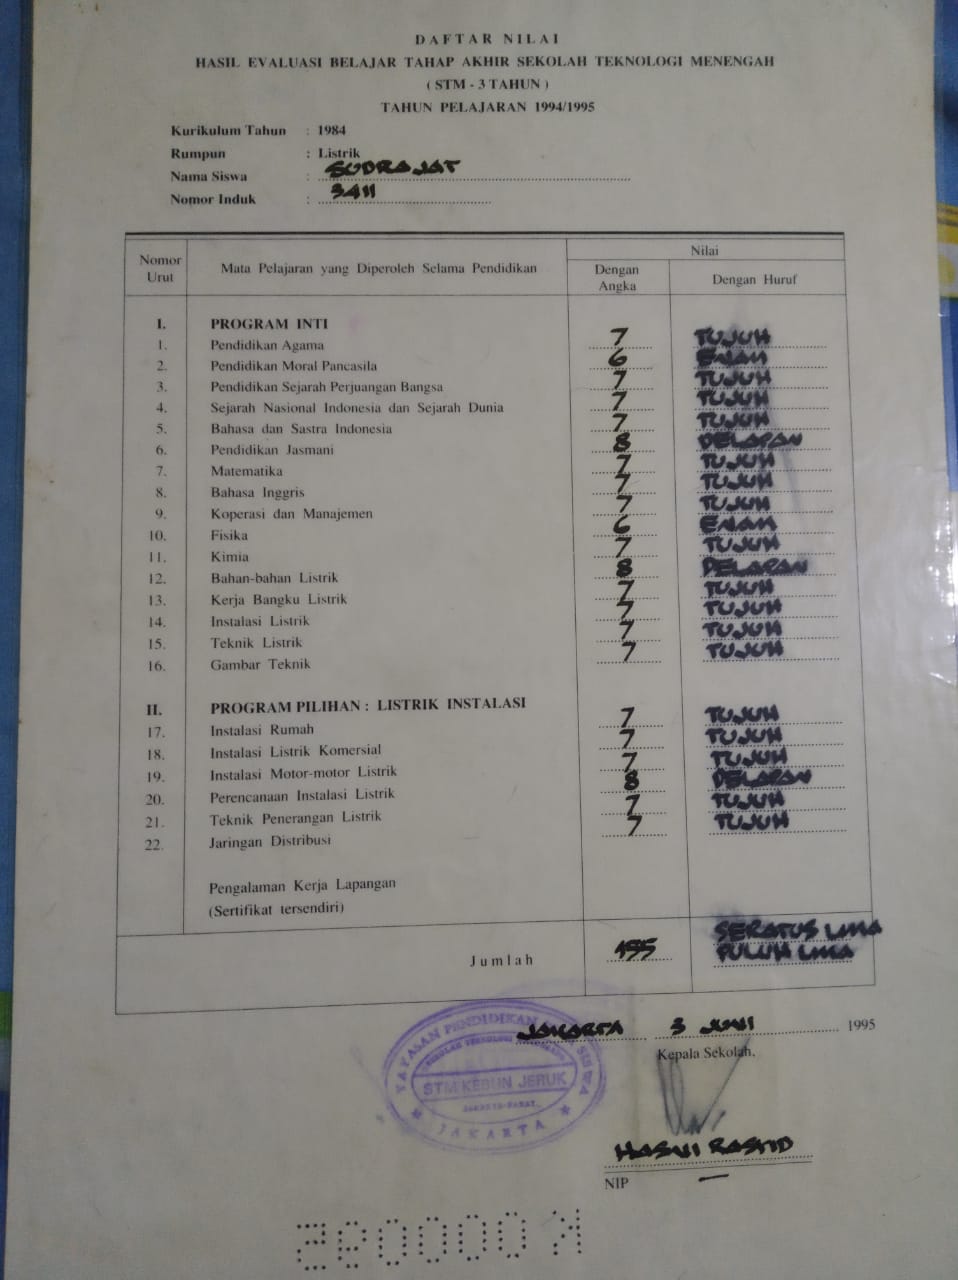 DAFTAR NILAI
HASIL EVALUASI BELAJAR TAHAP AKHIR SEKOLAH TEKNOLOGI MENENGAH
( STM - 3 TAHUN )
TAHUN PELAJARAN 1994/1995
Kurikulum Tahun : 1984
Rumpun : Listrik
Nama Siswa : SUDRAJAT
Nomor Induk : 3411
Nomor Urut Mata Pelajaran yang Diperoleh Selama Pendidikan Nilai
Dengan Angka Dengan Huruf
I. PROGRAM INTI
1. Pendidikan Agama 7 TUJUH
2. Pendidikan Moral Pancasila 6 ENAM
3. Pendidikan Sejarah Perjuangan Bangsa 7 TUJUH
4. Sejarah Nasional Indonesia dan Sejarah Dunia 7 TUJUH
5. Bahasa dan Sastra Indonesia 7 TUJUH
6. Pendidikan Jasmani 8 DELAPAN
7. Matematika 7 TUJUH
8. Bahasa Inggris 7 TUJUH
9. Koperasi dan Manajemen 7 TUJUH
10. Fisika 6 ENAM
11. Kimia 7 TUJUH
12. Bahan-bahan Listrik 8 DELAPAN
13. Kerja Bangku Listrik 7 TUJUH
14. Instalasi Listrik 7 TUJUH
15. Teknik Listrik 7 TUJUH
16. Gambar Teknik 7 TUJUH
II. PROGRAM PILIHAN : LISTRIK INSTALASI
17. Instalasi Rumah 7 TUJUH
18. Instalasi Listrik Komersial 7 TUJUH
19. Instalasi Motor-motor Listrik 7 TUJUH
20. Perencanaan Instalasi Listrik 8 DELAPAN
21. Teknik Penerangan Listrik 7 TUJUH
22. Jaringan Distribusi 7 TUJUH
Pengalaman Kerja Lapangan
(Sertifikat tersendiri)
Jumlah 155 SERATUS LIMA
PULUH LIMA
JAKARTA 3 JUNI 1995
Kepala Sekolah,
YAYASAN PENDIDIKAN SISWA
STM KEBUN JERUK
JAKARTA-BARAT
JAKARTA
HASNI RASYID
NIP —